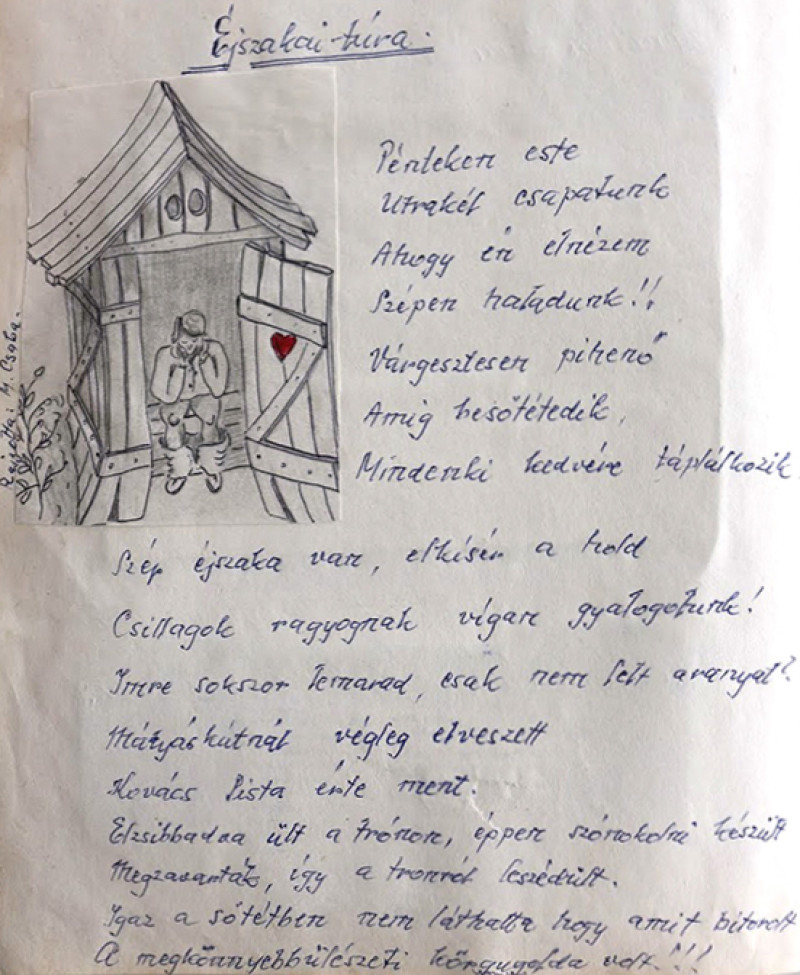 Éjszakai-túra.
Pénteken este
Utrakél csapatunk
Ahogy én elnézem
Szépen haladunk!!
Várgesztesen pihenő
Amig besőtétedik,
Mindenki kedvére táplálkozik.
Rajzolta: M. Csaba.
Szép éjszaka van, elkisér a hold
Csillagok ragyognak vígan gyalogolunk!
Imre sokszor lemarad, csak nem lelt aranyat?
Mátyáskútnál végleg elveszett
Kovács Pista érte ment.
Elzsibbadva ült a trónon, éppen szónokolni készült
Megzavarták, így a tronról leszédült.
Igaz a sötétben nem láthatta hogy amit bitorolt
A megkönnyebbülészeti volt!!!